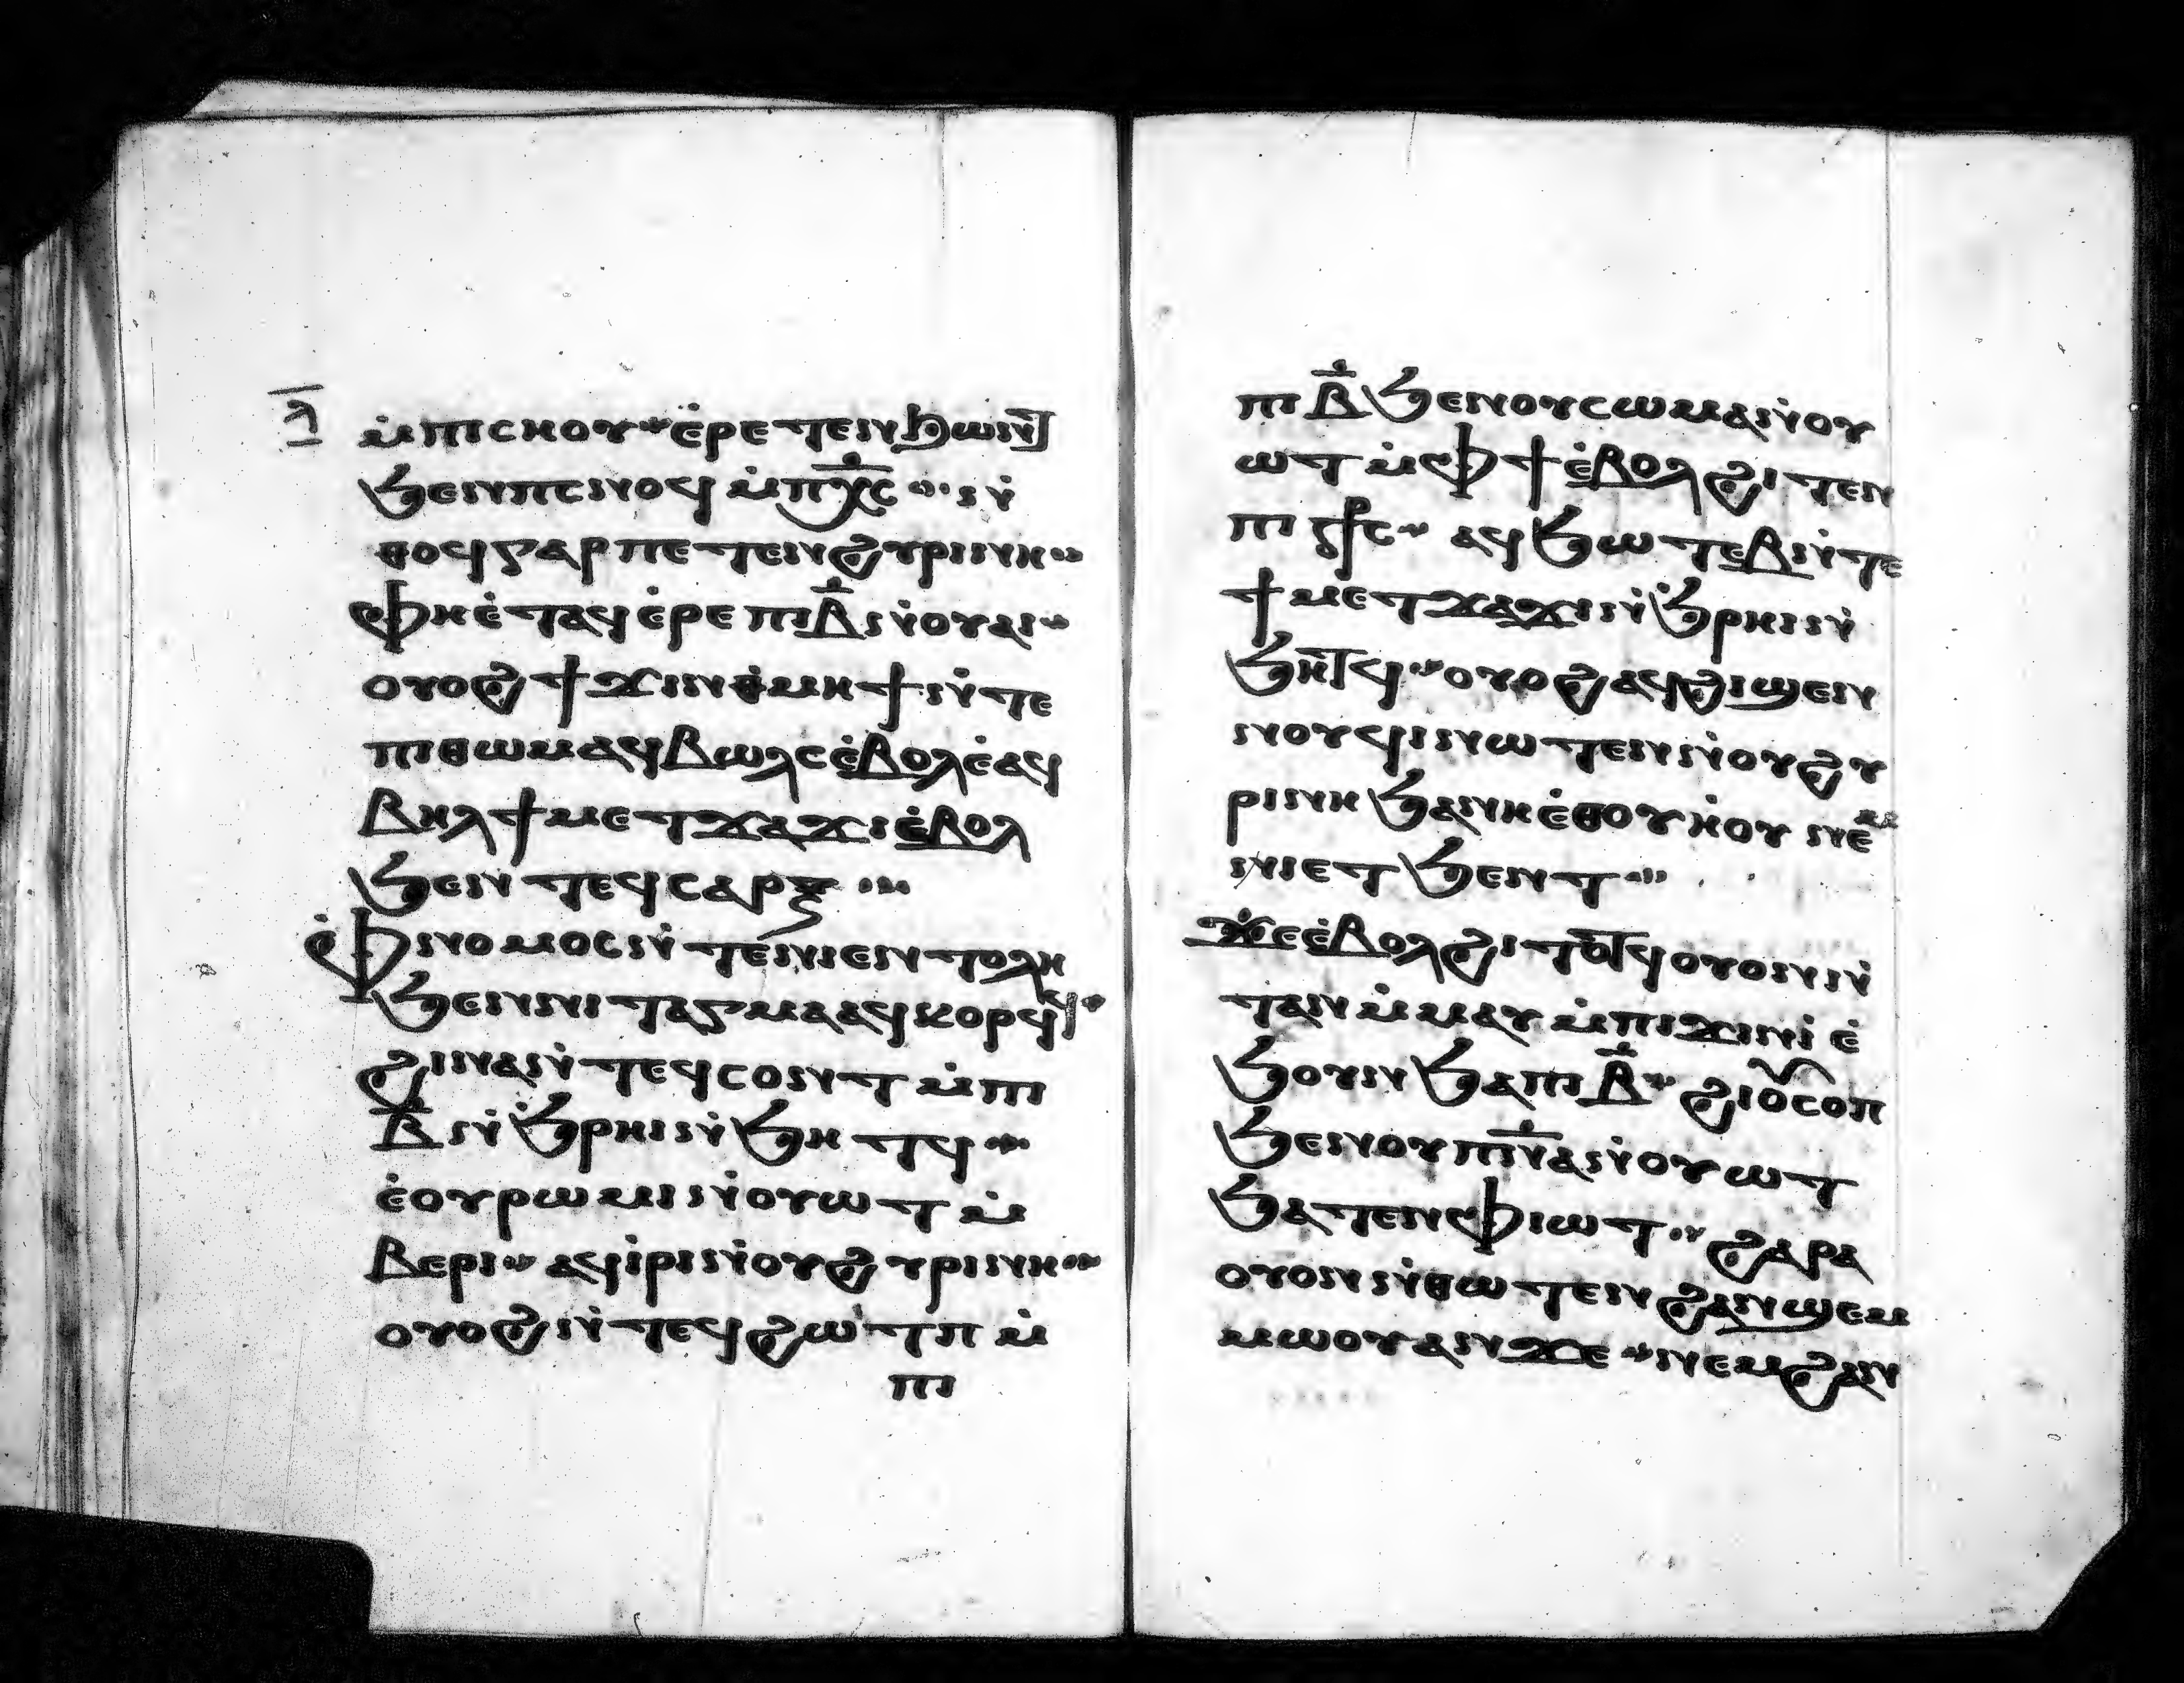 ⲗ̅
ⲙ̀ⲡⲓⲥⲏⲟⲩ ⲉ̀ⲣⲉⲧⲉⲛϧⲱⲛⲧ
ϧⲉⲛⲡⲥⲛⲟϥ ⲙ̀ⲡⲭ̅ⲥ̅ ⲛ̀
ⲑⲟϥⲅⲁⲣⲡⲉⲧⲉⲛϩⲩⲣⲓⲛⲏ
ⲫⲏⲉ̀ⲧⲁϥⲉ̀ⲣⲉⲡⲓⲃ̅ⲛ̀ⲟⲩⲁⲓ
ⲟⲩⲟϩϯϫⲓⲛⲑⲙⲏϯⲛ̀ⲧⲉ
ⲡⲓⲑⲱⲙⲁϥⲃⲱⲗⲥⲉ̀ⲃⲟⲗⲉ̀ⲁϥ
ⲃⲏⲗϯⲙⲉⲧϫⲁϫⲓⲉ̀ⲃⲟⲗ
ϧⲉⲛⲧⲉϥⲥⲁⲣⲝ
ⲫ̀ⲛⲟⲙⲟⲥⲛ̀ⲧⲉⲛⲓⲉⲛⲧⲟⲗⲏ
ϧⲉⲛⲛⲓⲧⲁⲅⲙⲁⲁϥⲕⲟⲣϥϥ
ϩⲓⲛⲁⲛ̀ⲧⲉϥⲥⲟⲛⲧⲙ̀ⲡⲓ
ⲃ̅ⲛ̀ϧ̀ⲣⲏⲓⲛ̀ϧⲏⲧϥ
ⲉ̀ⲟⲩⲣⲱⲙⲓⲛ̀ⲟⲩⲱⲧⲙ̀
ⲃⲉⲣⲓ ⲁϥⲓ̀ⲣⲓⲛ̀ⲟⲩϩⲩⲣⲓⲛⲏ
ⲟⲩⲟϩⲛ̀ⲧⲉϥϩⲱⲧⲡⲙ̀
ⲡⲓ
ⲡⲓⲃ̅ϧⲉⲛⲟⲩⲥⲱⲙⲁⲛ̀ⲟⲩ
ⲱⲧⲙ̀ⲫϯⲉ̀ⲃⲟⲗϩⲓⲧⲉⲛ
ⲡⲓⲥ̅ⲣ̅ⲥ̅ ⲁϥϧⲱⲧⲉⲃⲛ̀ⲧⲉ
ϯⲙⲉⲧϫⲁϫⲓⲛ̀ϧ̀ⲣⲏⲓⲛ̀
ϧⲏⲧϥ ⲟⲩⲟϩⲁϥϩⲓϣⲉⲛ
ⲛⲟⲩϥⲓⲛⲱⲧⲉⲛⲛ̀ⲟⲩϩⲩ
ⲣⲓⲛⲏϧⲁⲛⲏⲉ̀ⲑⲟⲩⲏ̀ⲟⲩⲛⲉⲙ
ⲛⲓⲉⲧϧⲉⲛⲧ
ϫⲉⲉ̀ⲃⲟⲗϩⲓⲧⲟⲧϥⲟⲩⲟⲛⲛ̀
ⲧⲁⲛⲙ̀ⲙⲁⲩⲙ̀ⲡⲓϫⲓⲛⲓ̀ⲉ̀
ϧⲟⲩⲛϧⲁⲡⲓⲃ̅ ϩⲓⲟ̀ⲥⲟⲡ
ϧⲉⲛⲟⲩⲡⲛ̅ⲁⲛ̀ⲟⲩⲱⲧ
ϧⲁⲧⲉⲛⲫⲓⲱⲧ ϩⲁⲣⲁ
ⲟⲩⲟⲛⲛ̀ⲑⲱⲧⲉⲛϩⲁⲛϣⲉⲙ
ⲙⲱⲟⲩⲁⲛϫⲉ ⲛⲉⲙϩⲁⲛ